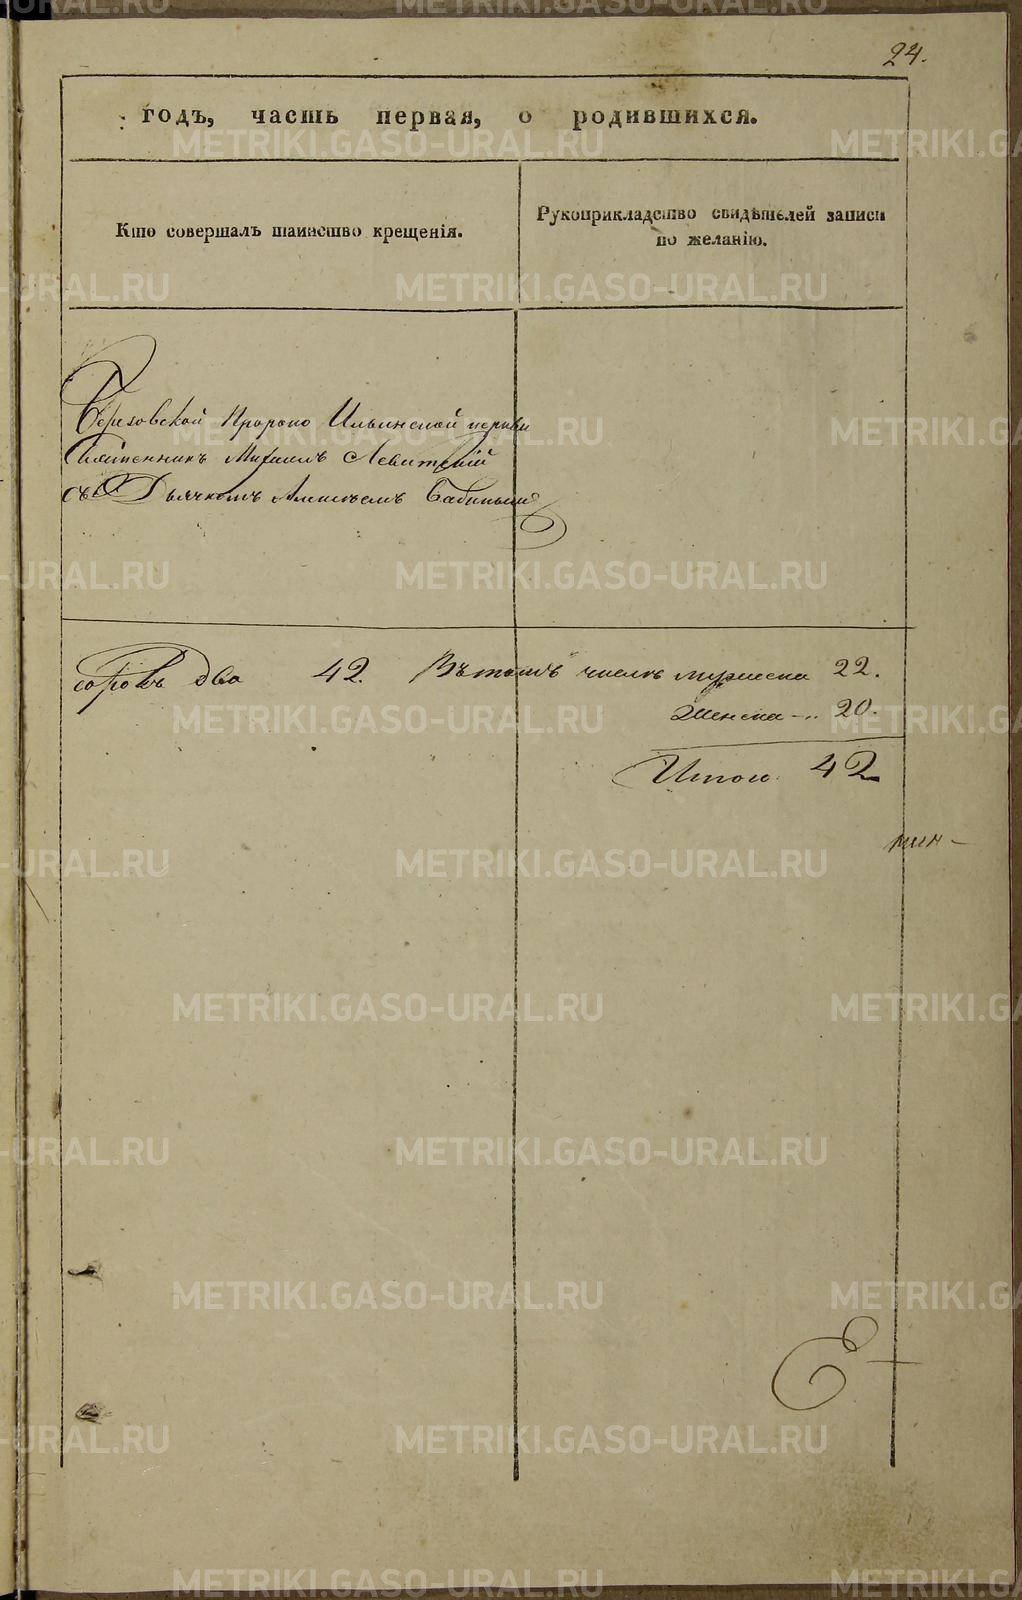 24.
годъ, часть первая, о родившихся.
Кто совершалъ таинство крещенія.
Рукоприкладство свидѣтелей записи
по желанію.
Березовской Пророко Ильинской церкви
Священникъ Михаилъ Левитскій
съ Дьячкомъ Алексѣемъ Бабинымъ
сорокъ два 42. Въ томъ числѣ мужеска 22.
женска -.. 20.
Итого 42
METRIKI.GASO-URAL.RU